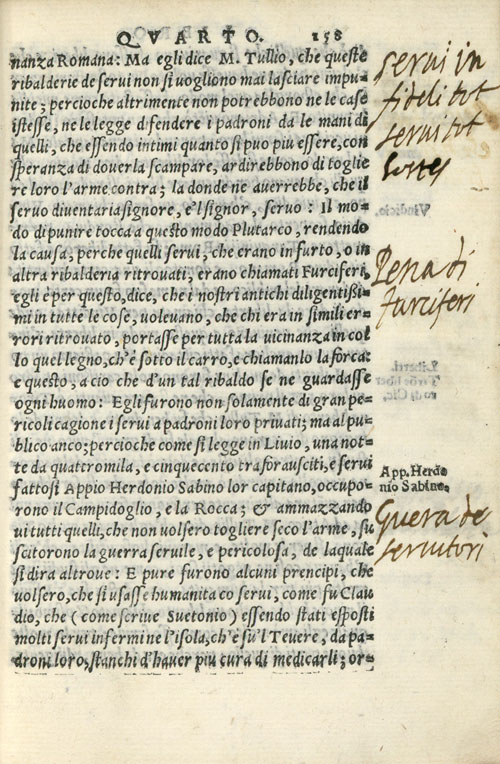 QVARTO. 158
nanza Romana: Ma egli dice M. Tullio, che queste
ribalderie de serui non si uogliono mai lasciare impu-
nite; percioche altrimente non potrebbono ne le case
istesse, ne le legge difendere i padroni da le mani di
quelli, che essendo intimi quanto si puo piu essere, con
speranza di douerla scampare, ardirebbono di toglie
re loro l'arme contra; la donde ne auerrebbe, che il
seruo diuentaria signore, e'l signor, seruo: Il mo-
do di punire tocca a questo modo Plutarco, rendendo
la causa; perche quelli serui, che erano in furto, o in
altra ribalderia ritrouati, erano chiamati Furciferi,
egli è per questo, dice, che i nostri antichi diligentißi-
mi in tutte le cose, uoleuano, che chi era in simili er-
rori ritrouato, portasse per tutta la uicinanza in col
lo quel legno, ch'è sotto il carro, e chiamanlo la forca:
e questo, a cio che d'un tal ribaldo se ne guardasse
ogni huomo: Egli furono non solamente di gran pe-
ricoli cagione i serui a padroni loro priuati; ma al pu-
blico anco; percioche come si legge in Liuio, una not-
te da quattromila, e cinquecento tra forausciti, e serui
fattosi Appio Herdonio Sabino lor capitano, occupo-
rono il Campidoglio, e la Rocca; & ammazzando
ui tutti quelli, che non uolsero togliere seco l'arme, su
scitorono la guerra seruile, e pericolosa, de laquale
si dira altroue: E pure furono alcuni prencipi, che
uolsero, che si usasse humanita co serui, come fu Clau
dio, che (come scriue Suetonio) essendo stati esposti
molti serui infermi ne l'isola, ch'è su'l Teuere, da pa-
droni loro, stanchi d'hauer piu cura di medicarli; or-
serui in
fideli tot
serui tot
Pena di
furciferi
App. Herdo
nio Sabino.
Guera de
seruitori